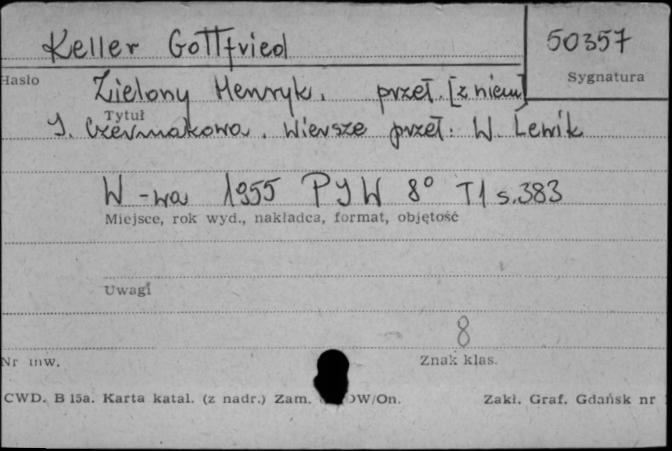 Keller Gottfried
50357
Hasło
Sygnatura
Zielony Henryk. przeł. [z niem]
Tytuł
I. Czermakowa. Wiersze przeł. W. Lewik
W-wa 1955 PIW 8° T1 s.383
Miejsce, rok wyd., nakładca, format, objętość
Uwagi
8
Nr inw.
Znak klas.
CWD. B 15a. Karta katal. (z nadr.) Zam. OW/On.
Zakł. Graf. Gdańsk nr